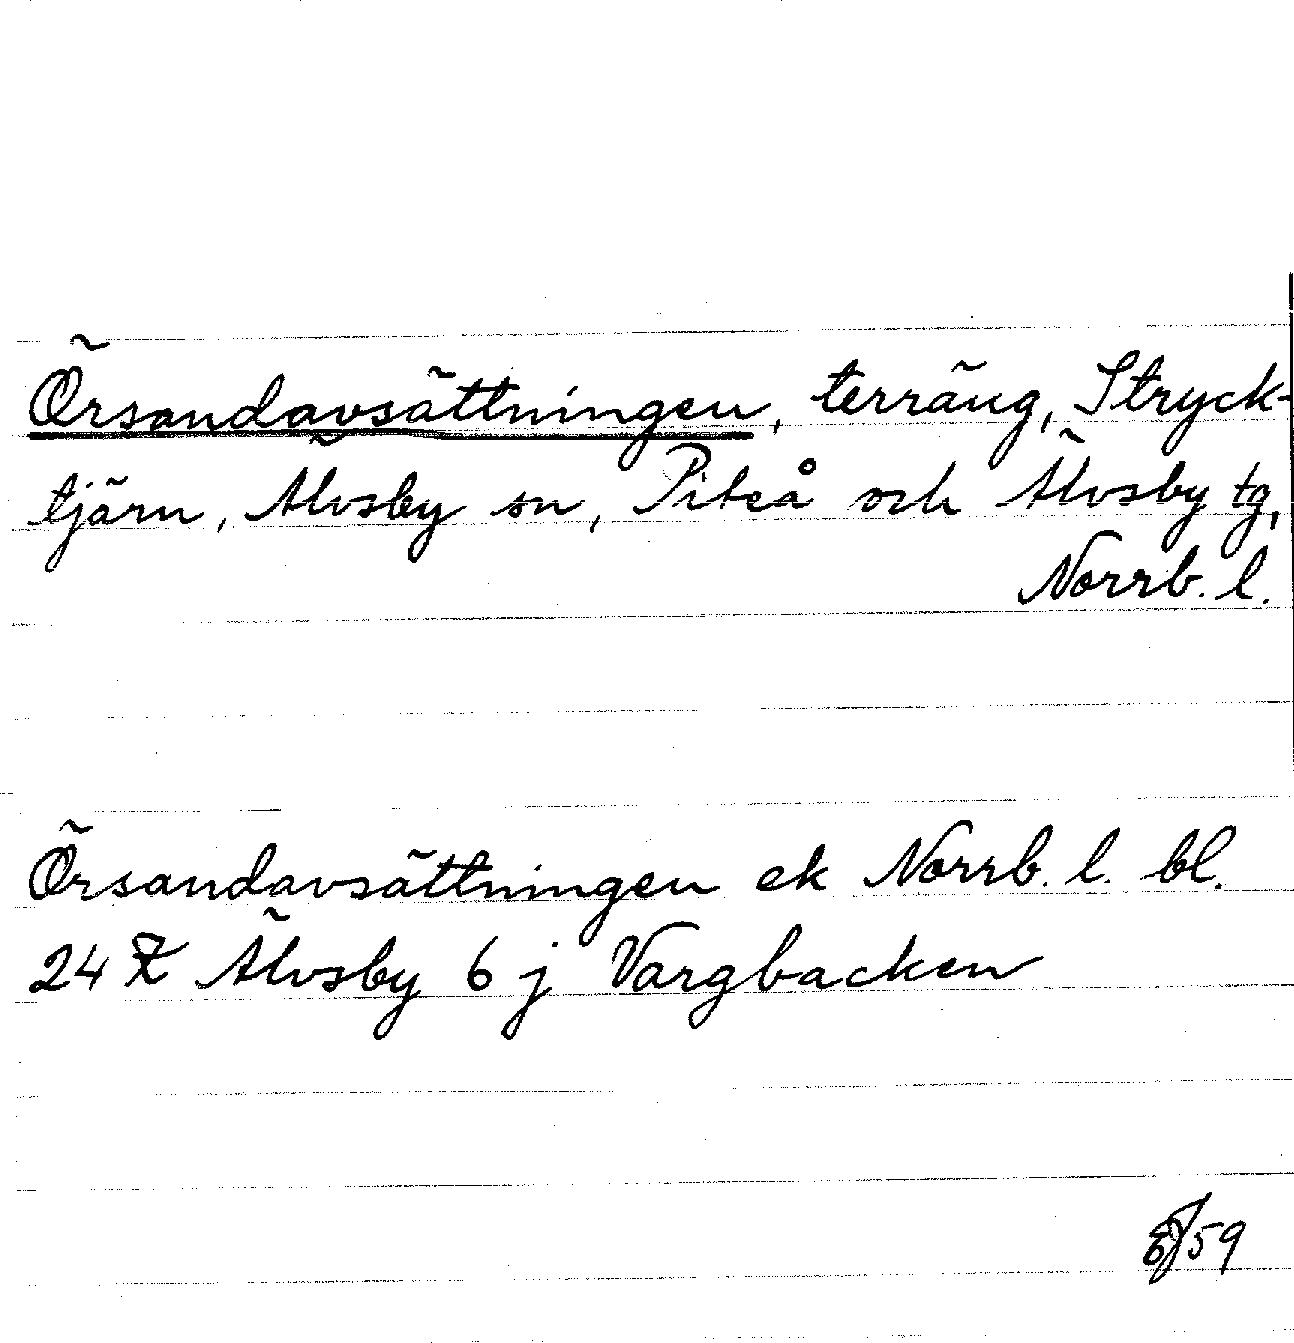 Örsandavsättningen, terräng, Stryck-
tjärn, Älvsby sn, Piteå och Älvsby tg,
Norrb. l.
Örsandavsättningen ek Norrb. l. bl.
24 Älvsby 6 j Vargbacken